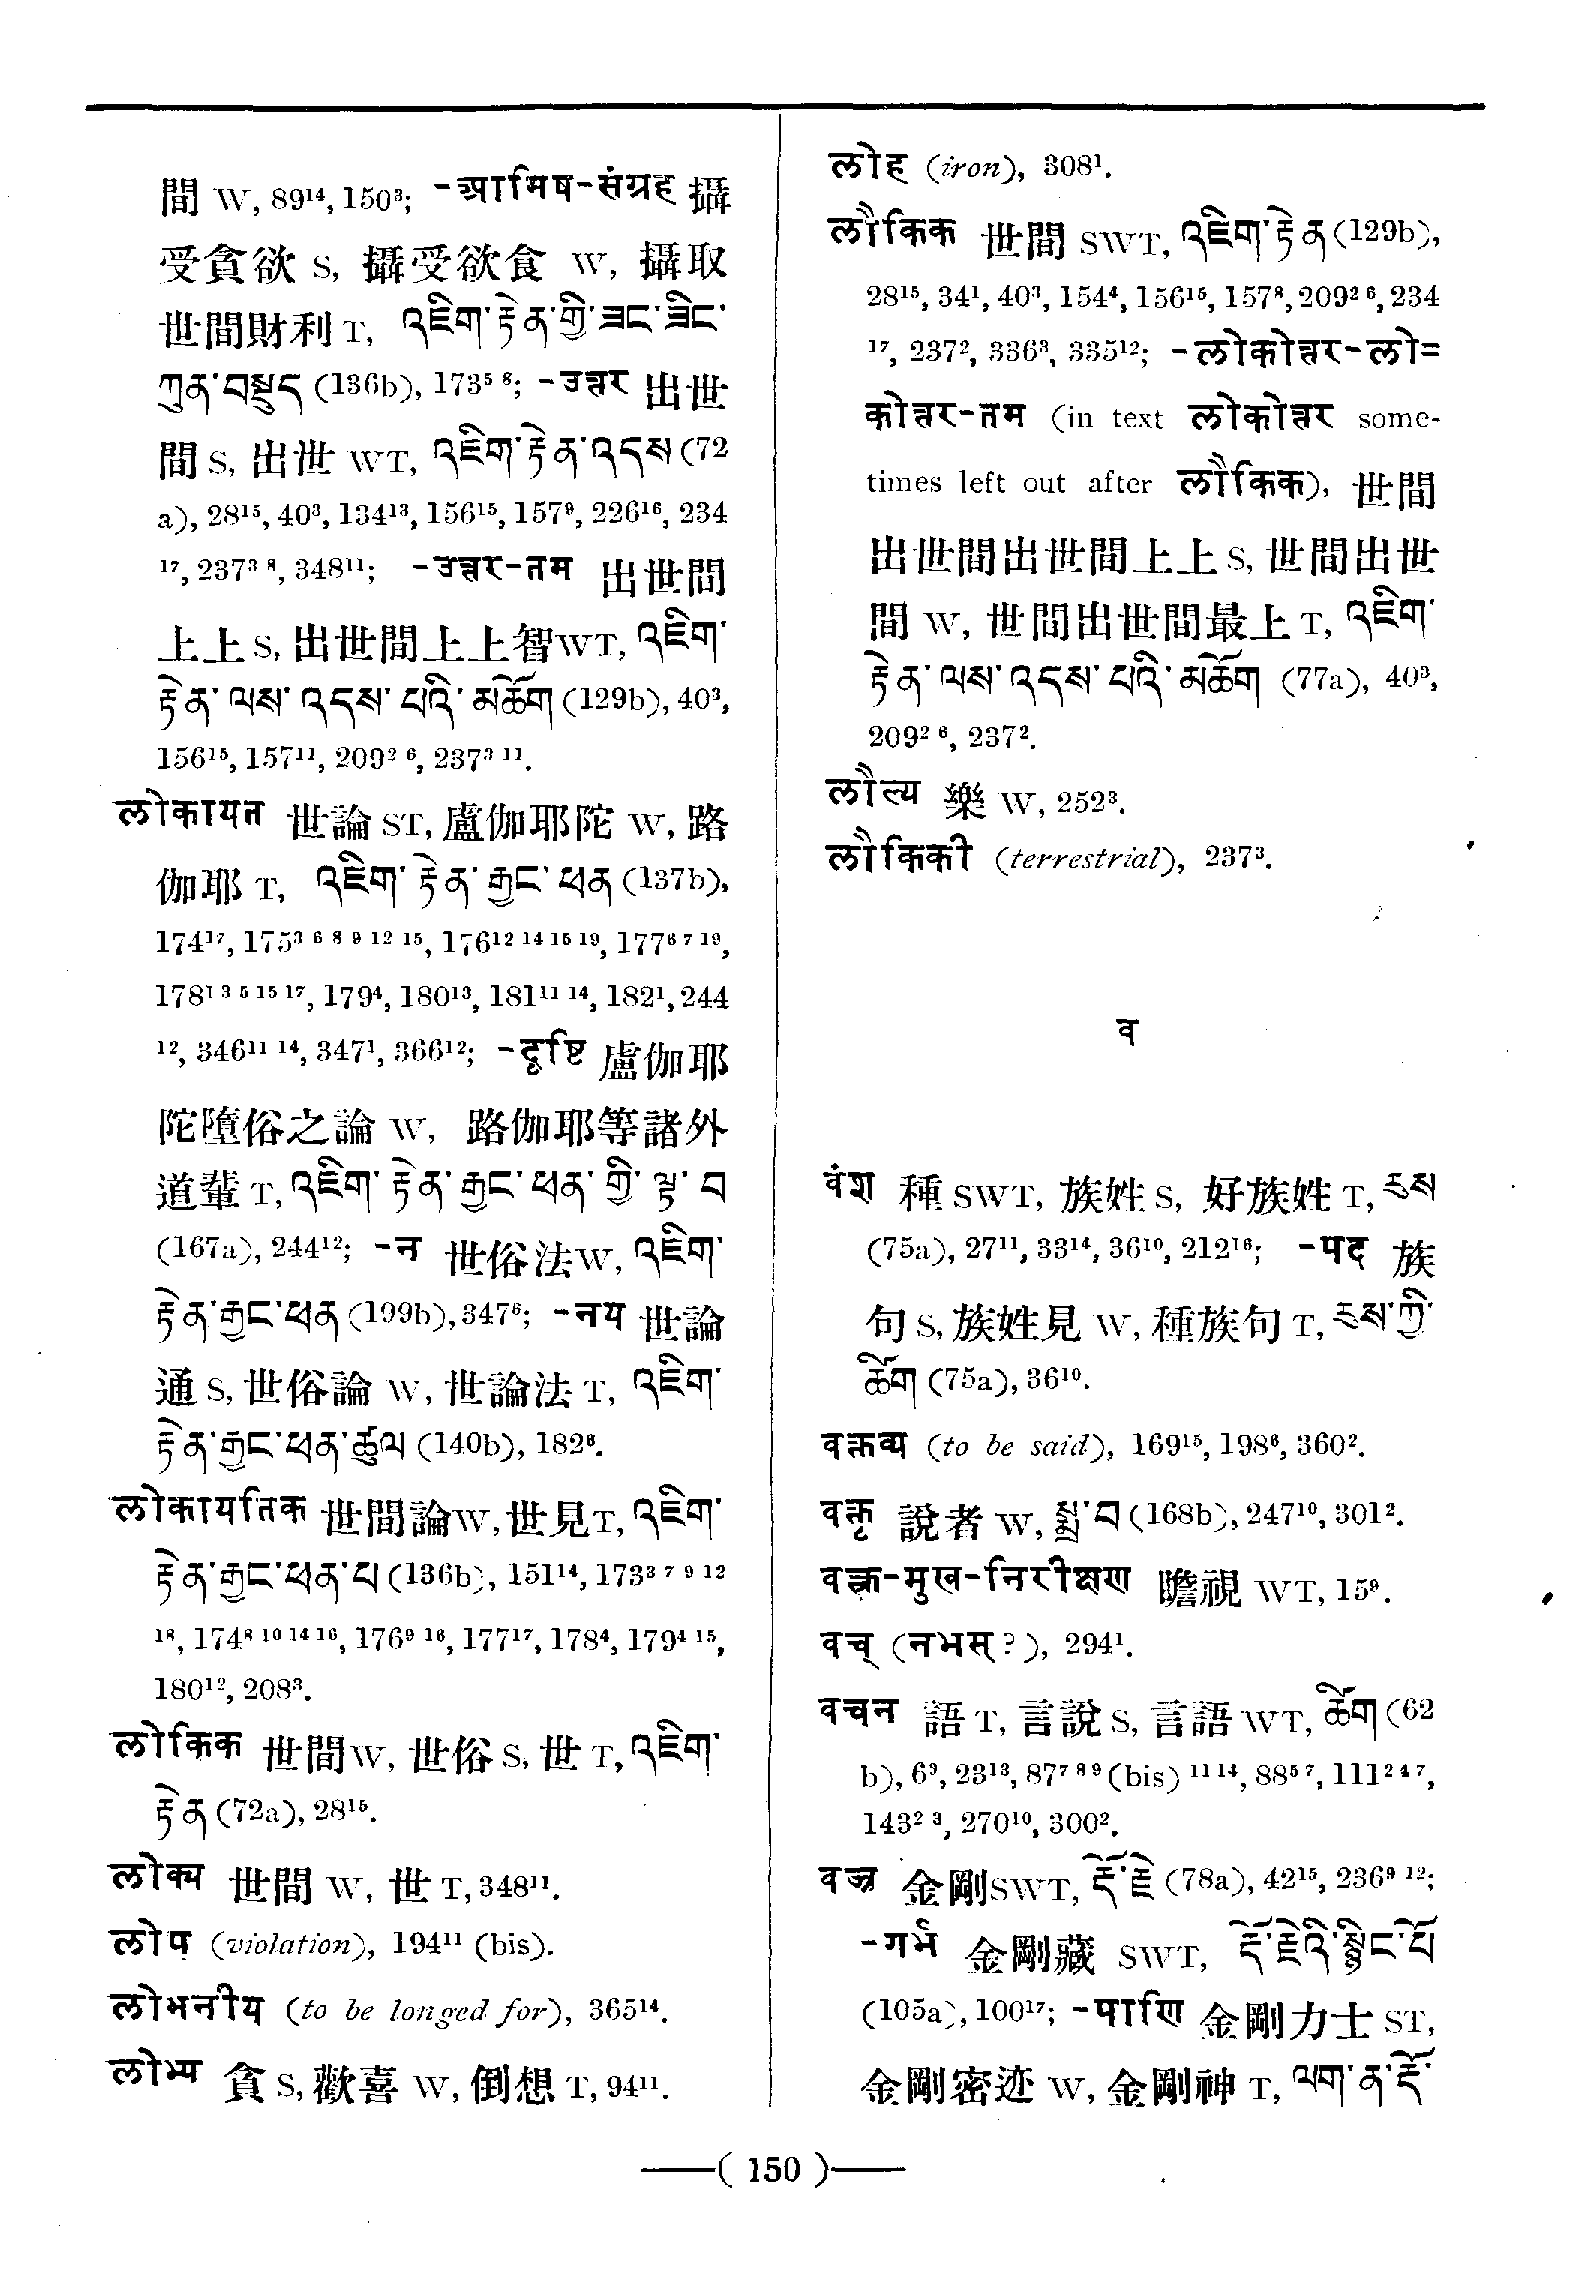 間 W, 89¹⁴, 150³; -आमिष-संग्रह 攝
受貪欲 S, 攝受欲食 W, 攝取
世間財利 T, འཇིག་རྟེན་གྱི་ཟང་ཟིང་
ཀུན་བསྡུད (136b), 173⁵ ⁸; -उत्तर 出世
間 S, 出世 WT, འཇིག་རྟེན་འདས (72
a), 28¹⁵, 40³, 134¹³, 156¹⁵, 157⁹, 226¹⁶, 234
¹⁷, 237³ ⁸, 348¹¹; -उत्तर-तम 出世間
上上 S, 出世間上上智 WT, འཇིག་
རྟེན་ ལས་ འདས་ པའི་ མཆོག (129b), 40³,
156¹⁵, 157¹¹, 209² ⁶, 237³ ¹¹.
लोकायत 世論 ST, 盧伽耶陀 W, 路
伽耶 T, འཇིག་ རྟེན་ རྒྱང་ ཕན (137b),
174¹⁷, 175³ ⁶ ⁸ ⁹ ¹² ¹⁵, 176¹² ¹⁴ ¹⁵ ¹⁹, 177⁶ ⁷ ¹⁹,
178¹ ³ ⁵ ¹⁵ ¹⁷, 179⁴, 180¹³, 181¹¹ ¹⁴, 182¹, 244
¹², 346¹¹ ¹⁴, 347¹, 366¹²; -दृष्टि 盧伽耶
陀墮俗之論 W, 路伽耶等諸外
道輩 T, འཇིག་ རྟེན་ རྒྱང་ ཕན་ གྱི་ ལྟ་ བ
(167a), 244¹²; -न 世俗法 W, འཇིག་
རྟེན་རྒྱང་ཕན (199b), 347⁶; -नय 世論
通 S, 世俗論 W, 世論法 T, འཇིག་
རྟེན་རྒྱང་ཕན་ཚུལ (140b), 182⁶.
लोकायतिक 世間論 W, 世見 T, འཇིག་
རྟེན་རྒྱང་ཕན་པ (136b), 151¹⁴, 173³ ⁷ ⁹ ¹²
¹⁸, 174⁸ ¹⁰ ¹⁴ ¹⁶, 176⁹ ¹⁶, 177¹⁷, 178⁴, 179⁴ ¹⁵,
180¹², 208³.
लोकिक 世間 W, 世俗 S, 世 T, འཇིག་
རྟེན (72a), 28¹⁵.
लोक्य 世間 W, 世 T, 348¹¹.
लोप (violation), 194¹¹ (bis).
लोभनीय (to be longed for), 365¹⁴.
लोभ्य 貪 S, 歡喜 W, 倒想 T, 94¹¹.
लोह (iron), 308¹.
लौकिक 世間 SWT, འཇིག་རྟེན (129b),
28¹⁵, 34¹, 40³, 154⁴, 156¹⁵, 157⁸, 209² ⁶, 234
¹⁷, 237², 336³, 335¹²; -लोकोत्तर-लो=
कोत्तर-तम (in text लोकोत्तर some-
times left out after लौकिक), 世間
出世間出世間上上 S, 世間出世
間 W, 世間出世間最上 T, འཇིག་
རྟེན་ ལས་ འདས་ པའི་ མཆོག (77a), 40³,
209² ⁶, 237².
लौल्य 樂 W, 252³.
लौकिकी (terrestrial), 237³.
व
वंश 種 SWT, 族姓 S, 好族姓 T, རུས
(75a), 27¹¹, 33¹⁴, 36¹⁰, 212¹⁶; -पद 族
句 S, 族姓見 W, 種族句 T, རུས་ཀྱི་
ཚིག (75a), 36¹⁰.
वक्तव्य (to be said), 169¹⁵, 198⁶, 360².
वक्तृ 說者 W, སྨྲ་བ (168b), 247¹⁰, 301².
वक्त्र-मुख-निरीक्षण 瞻視 WT, 15⁹.
वच् (नभस्?), 294¹.
वचन 語 T, 言說 S, 言語 WT, ཚིག (62
b), 6⁹, 23¹³, 87⁷ ⁸ ⁹ (bis) ¹¹ ¹⁴, 88⁵ ⁷, 111² ⁴ ⁷,
143² ³, 270¹⁰, 300².
वज्र 金剛 SWT, རྡོ་རྗེ (78a), 42¹⁵, 236⁹ ¹²;
-गर्भ 金剛藏 SWT, རྡོ་རྗེའི་སྙིང་པོ
(105a), 100¹⁷; -पाणि 金剛力士 ST,
金剛密迹 W, 金剛神 T, ལག་ན་རྡོ་
—( 150 )—